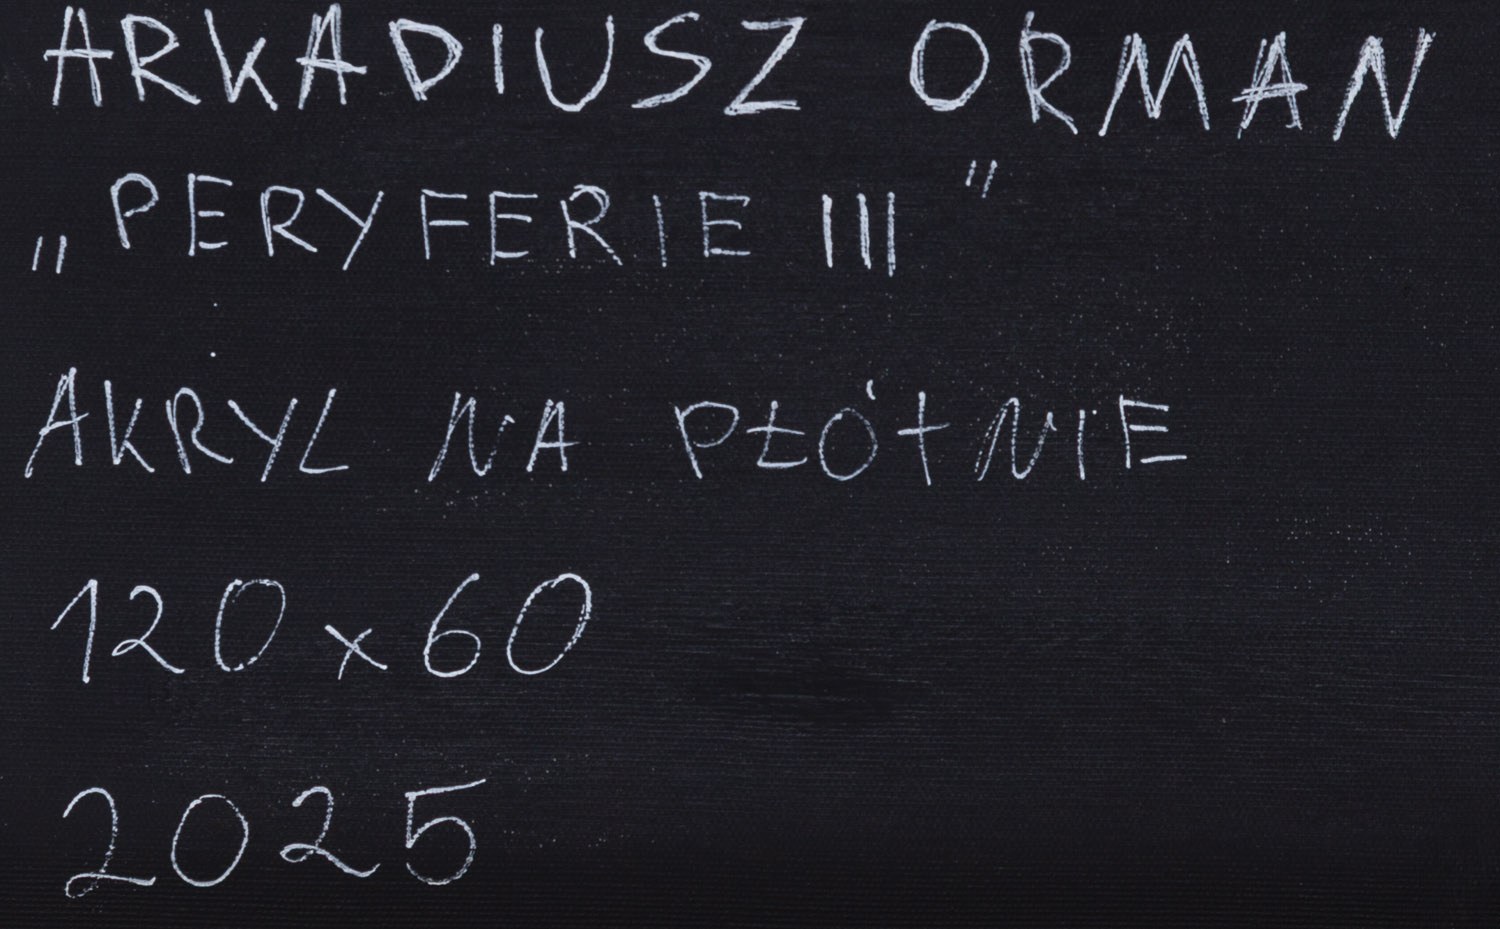 ARKADIUSZ ORMAN
„PERYFERIE III"
AKRYL NA PŁÓTNIE
120x60
2025